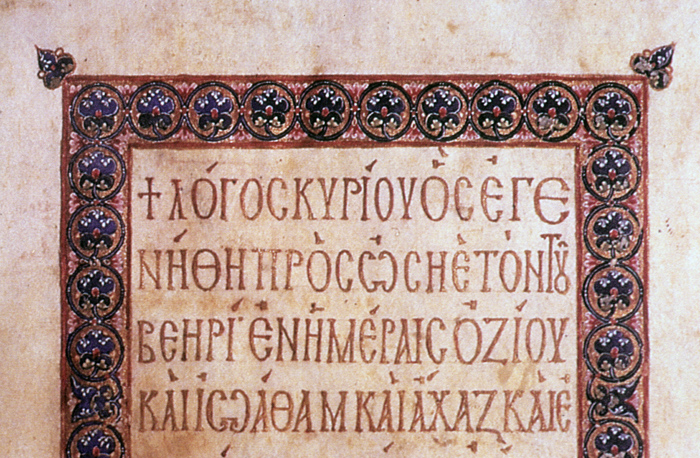 ✝ΛΟΓΟϹΚΥΡΙΟΥΟϹΕΓΕ
ΝΗΘΗΠΡΟϹѠϹΗΕΤΟΝΤȢ
ΒΕΗΡΙΕΝΗΜΕΡΑΙϹΟΖΙΟΥ
ΚΑΙΙѠΑΘΑΜΚΑΙΑΧΑΖΚΑΙΕ